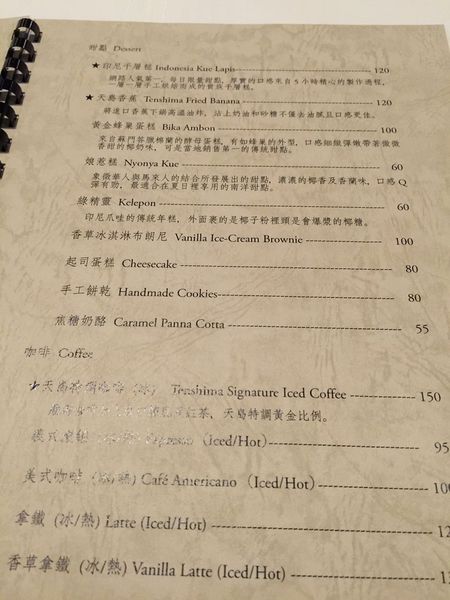 甜點 Dessert
★印尼千層糕 Indonesia Kue Lapis 120
網路人氣第一，每日限量甜點，厚實的口感來自5小時精心的製作過程，
一層一層手工烘焙而成的貴族千層糕。
★天島香蕉 Tenshima Fried Banana 120
將進口香蕉下鍋高溫油炸，沾上奶油和砂糖不僅去油膩且口感更佳。
黃金蜂巢蛋糕 Bika Ambon 100
來自蘇門答臘棉蘭的酵母蛋糕，有如蜂巢的外型，口感細緻彈嫩帶著微微
香甜的椰奶味，可是當地銷售第一的傳統甜點。
娘惹糕 Nyonya Kue 60
象徵華人與馬來人的結合所發展出的甜點，濃濃的椰香及香蘭味，口感Q
彈有勁，最適合在夏日裡享用的南洋甜點。
綠精靈 Kelepon 60
印尼爪哇的傳統年糕，外面裹的是椰子粉裡頭是會爆漿的椰糖。
香草冰淇淋布朗尼 Vanilla Ice-Cream Brownie 100
起司蛋糕 Cheesecake 80
手工餅乾 Handmade Cookies 80
焦糖奶酪 Caramel Panna Cotta 55
咖啡 Coffee
★天島特調咖啡（冰） Tenshima Signature Iced Coffee 150
紅茶，天島特調黃金比例。
Espresso （Iced/Hot） 95
美式咖啡 (冰/熱) Café Americano （Iced/Hot）
拿鐵 (冰/熱) Latte (Iced/Hot)
香草拿鐵 (冰/熱) Vanilla Latte (Iced/Hot)